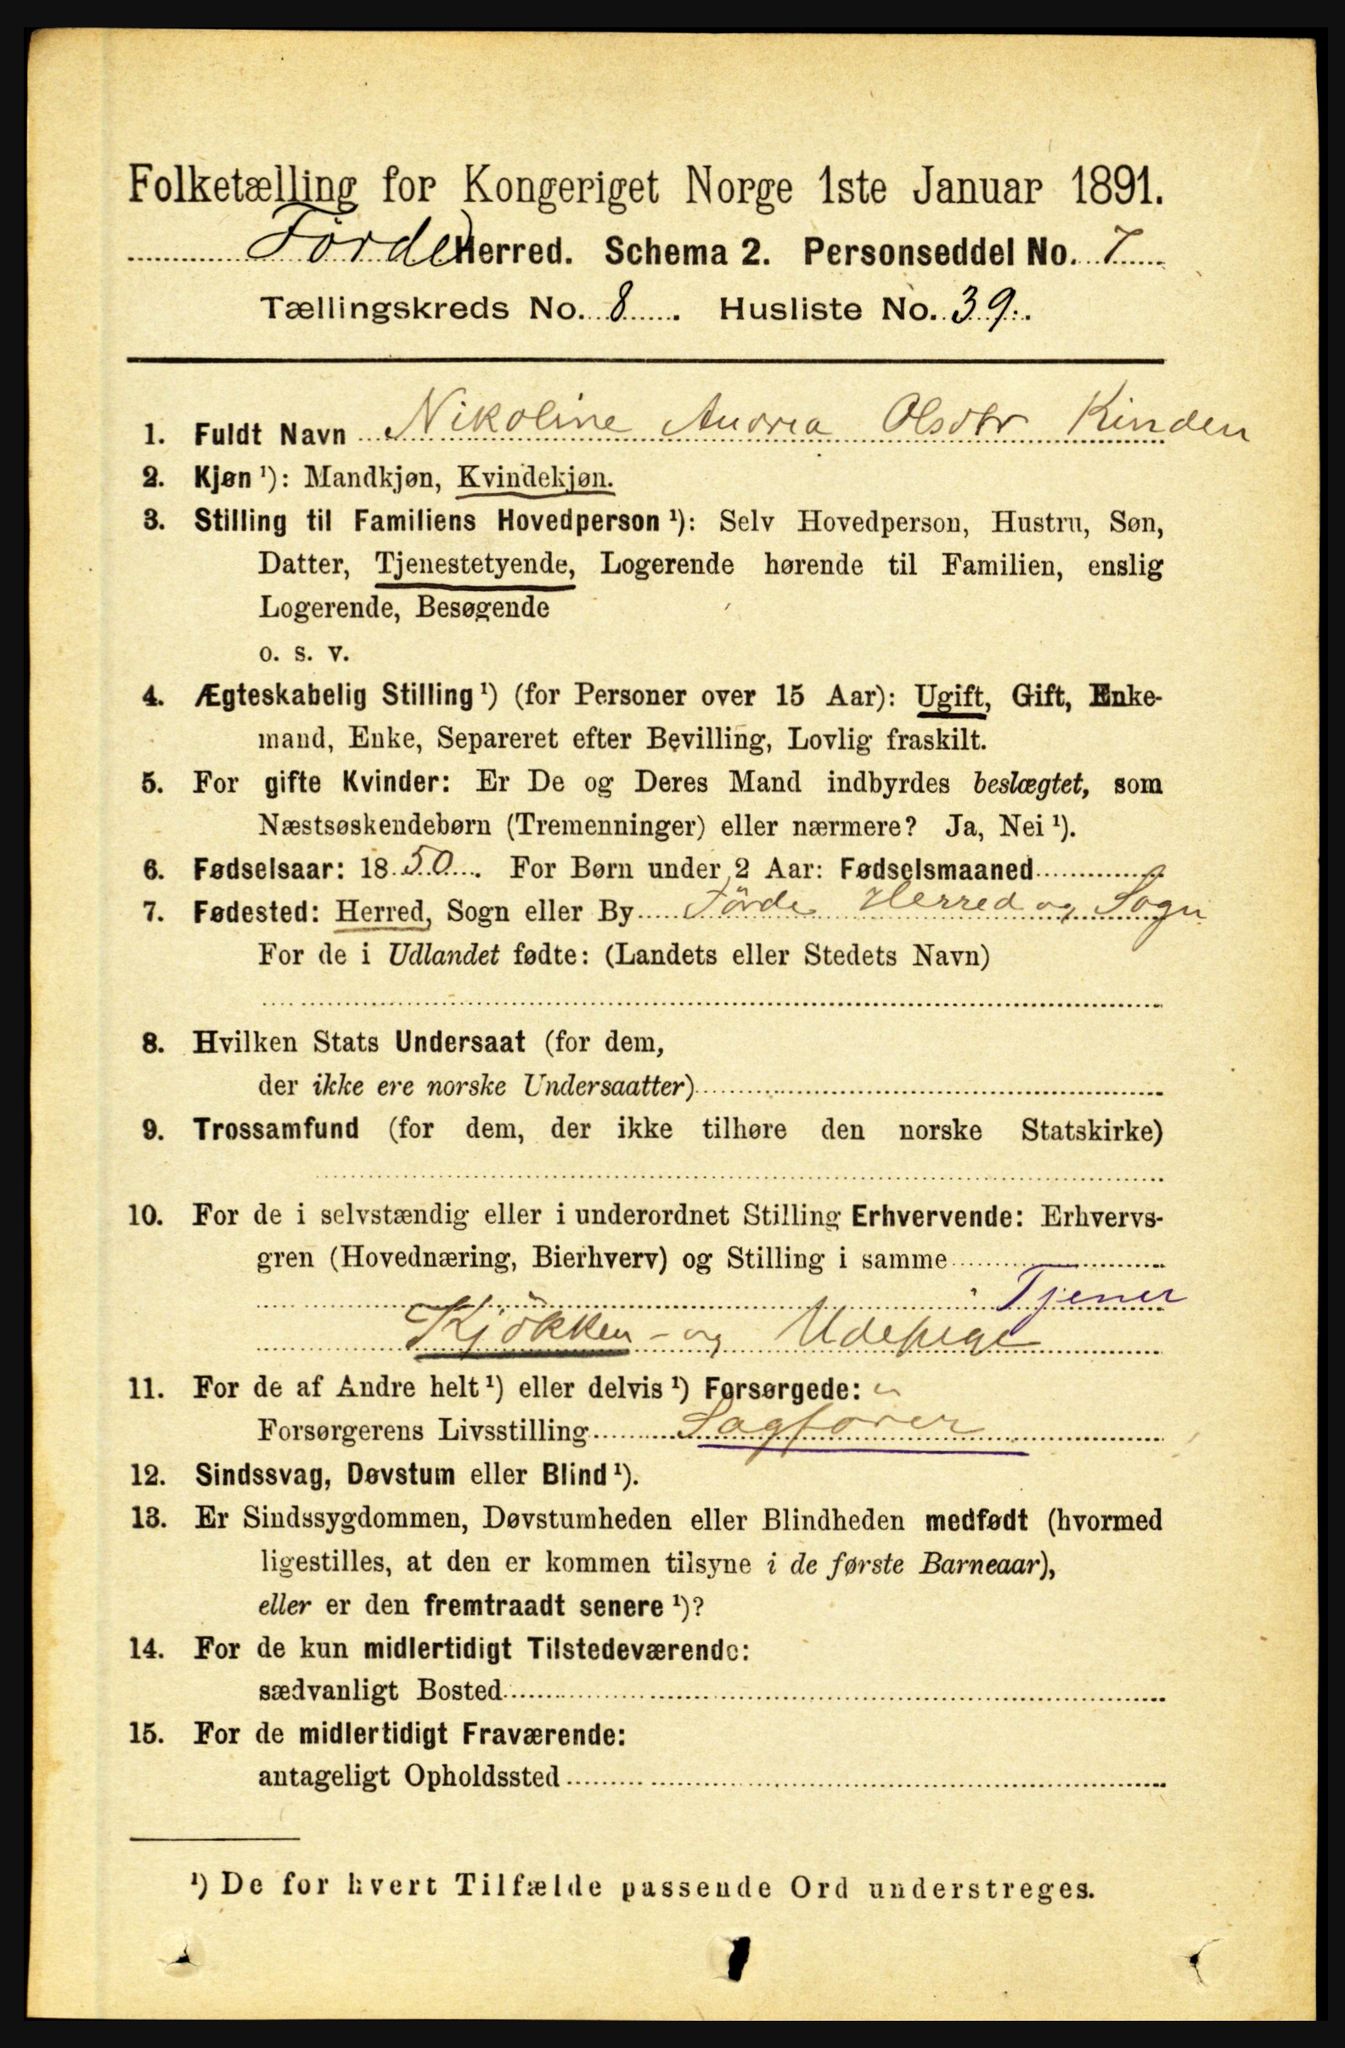 Folketælling for Kongeriget Norge 1ste Januar 1891.
Förde Herred. Schema 2. Personseddel No. 7
Tællingskreds No. 8. Husliste No. 39.
1. Fuldt Navn Nikoline Andrea Olsdtr Kinden
2. Kjøn ¹): Mandkjøn, Kvindekjøn.
3. Stilling til Familiens Hovedperson ¹): Selv Hovedperson, Hustru, Søn,
Datter, Tjenestetyende, Logerende hørende til Familien, enslig
Logerende, Besøgende
o. s. v.
4. Ægteskabelig Stilling ¹) (for Personer over 15 Aar): Ugift, Gift, Enke-
mand, Enke, Separeret efter Bevilling, Lovlig fraskilt.
5. For gifte Kvinder: Er De og Deres Mand indbyrdes beslægtet, som
Næstsøskendebørn (Tremenninger) eller nærmere? Ja, Nei ¹).
6. Fødselsaar: 1850. For Børn under 2 Aar: Fødselsmaaned
7. Fødested: Herred, Sogn eller By Förde Herred og Sogn
For de i Udlandet fødte: (Landets eller Stedets Navn)
8. Hvilken Stats Undersaat (for dem,
der ikke ere norske Undersaatter)
9. Trossamfund (for dem, der ikke tilhøre den norske Statskirke)
10. For de i selvstændig eller i underordnet Stilling Erhvervende: Erhvervs-
gren (Hovednæring, Bierhverv) og Stilling i samme
Tjener
Kjökken- og Udepige
11. For de af Andre helt ¹) eller delvis ¹) Forsørgede:
Forsørgerens Livsstilling Sagförer
12. Sindssvag, Døvstum eller Blind ¹).
13. Er Sindssygdommen, Døvstumheden eller Blindheden medfødt (hvormed
ligestilles, at den er kommen tilsyne i de første Barneaar),
eller er den fremtraadt senere ¹)?
14. For de kun midlertidigt Tilstedeværende:
sædvanligt Bosted
15. For de midlertidigt Fraværende:
antageligt Opholdssted
¹) De for hvert Tilfælde passende Ord understreges.